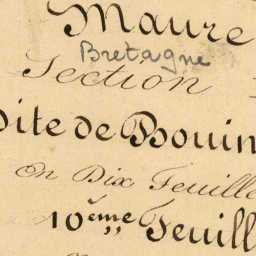 Maure
Bretagne
Section
Dite de Bouin
en Dix Feuille
10ème Feuill